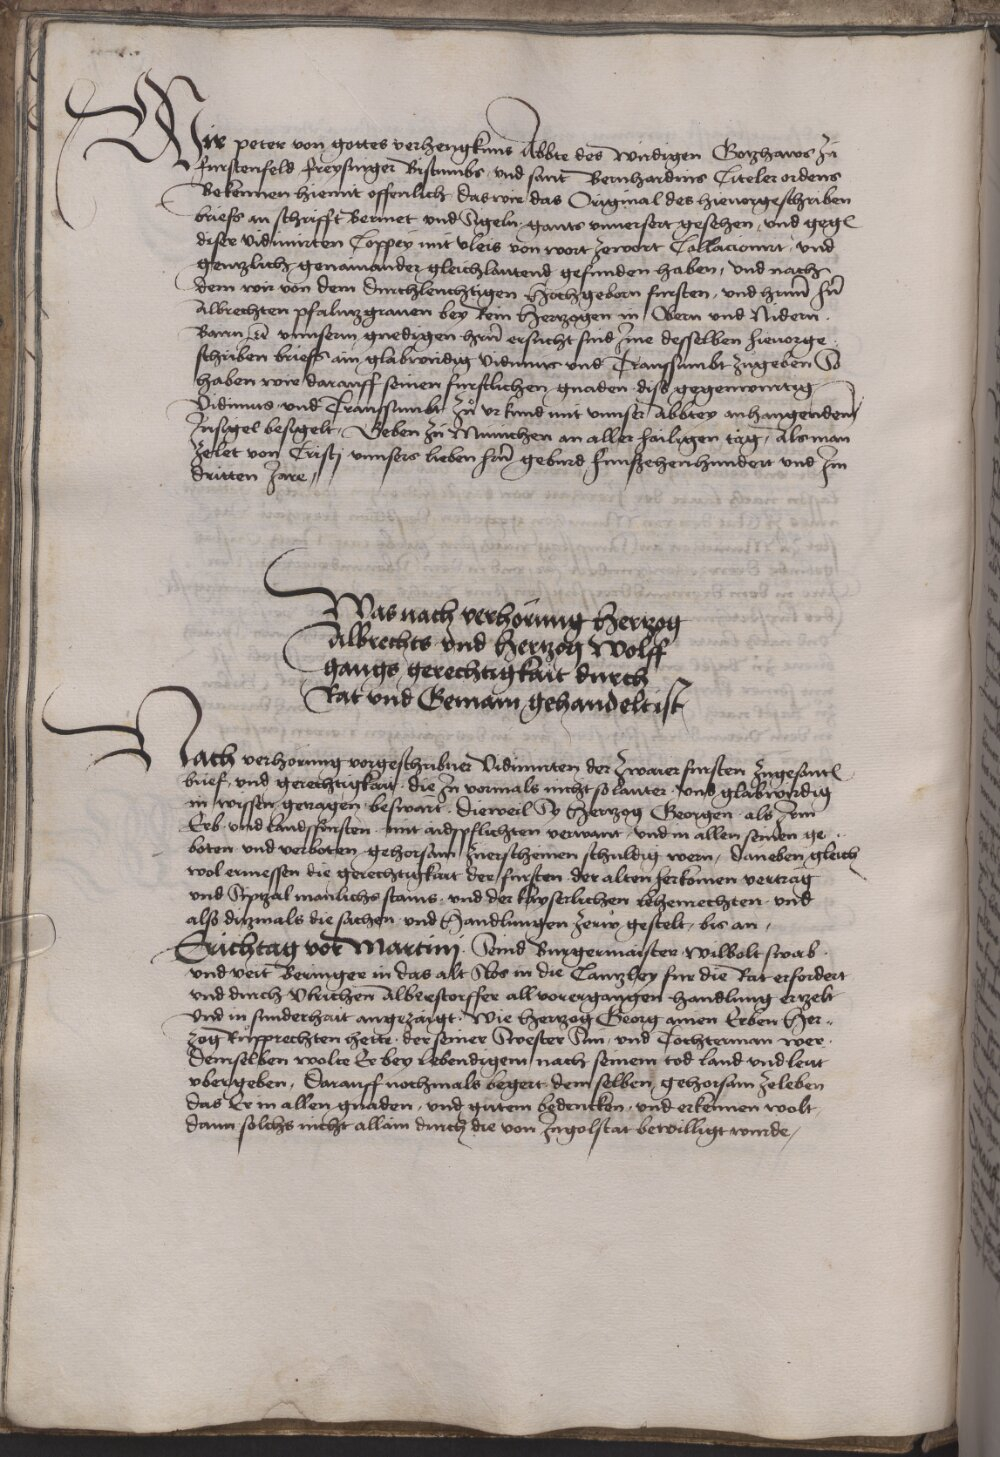 Wir peter von gottes verhengknus Abbte des wirdigen Gotzhaws zu
fürstenfeld freysinger Bistumbs und sant Bernhardins Citeler ordens
Bekennen hiemit offenlich das wir das Original des hievorgeschriben
briefs an schrifft Bermet und Sigeln gants unversert gesehen und gegen
diser vidimirten Coppey mit vleis von wort zewort Collacionirt und
gentzlich genainander gleichlautend gefunden haben, und nach
dem wir von dem durchleuchtigen Hochgeborn fursten und hern hern
Albrechten pfaltzgraven bey Rein Hertzogen in Obern und Nidern
Bairn unnserm gnedigen hern ersucht sind Ime desselben hievorge
schriben briefs ain glabwirdig vidimus und Transsumbt zugeben So
haben wir darauff seinen furstlichen gnaden dise gegenwirtig
Vidimus und Transsumbt Zu urkund mit unnser Abbtey anhangenden
Insigel besigelt, Geben zu Munichen an aller hailigen tag, Als man
zelet von Cristi unnsers lieben hern geburd funffzehenhundert und Im
dritten Jare //
Was nach verhorung Hertzog
Albrechts und Hertzog Wolff
gangs gerechtigkait durch
Rat und Gemain gehandelt ist
Nach verhorung vorgeschribner Vidimirten der zwaier fursten zugesant
brief und gerechtigkait die In vormals nicht so lauter und glabwirdig
in wissen getragen beswart dieweil Sy Hertzog Georgen als Irm
Erb und landssfursten mit aidspflichten verwant und in allen seinen ge
boten und verboten gehorsam zuerscheinen schuldig wern, daneben gleich
wol ermessen die gerechtigkait der fursten der alten herkomen vertrag
und Sipzal manlichs stams und der kayserlichen lehenrechten und
also dizmals die sachen und Handlungen zerw gestelt bis an,
Erichtag vor Martinj Send Burgermaister Wilbolt swab
und veit Beringer in das alt Slos in die Cantzley fur die Rat erfordert
und durch Ulrichen Alberstorffer all vorergangen handlung erzelt
und in sunderhait angezaigt wie Hertzog Georg ainen Erben Her
zog Rupprechten hette der seiner Swester Sun und Tochterman wer
demselben wolte Er bey lebendigem nach seinem tod land und leut
ubergeben, Darauff nochmals begert demselben gehorsam zeleben
das Er in allen gnaden und gutem bedencken und erkennen wolt
dann solchs nicht allain durch die von Ingolstat bewilligt wurde,